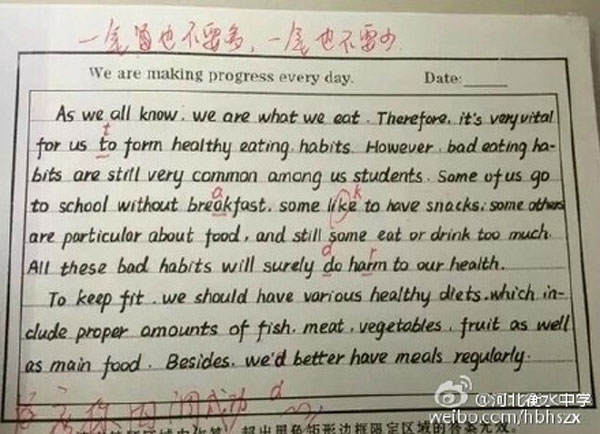 一笔画也不要多,一笔也不要少
We are making progress every day. Date:
As we all know, we are what we eat. Therefore, it's very vital
t
for us to form healthy eating habits. However, bad eating ha-
bits are still very common among us students. Some of us go
a k
to school without breakfast, some like to have snacks, some others
are particular about food, and still some eat or drink too much.
d r
All these bad habits will surely do harm to our health.
To keep fit, we should have various healthy diets, which in-
clude proper amounts of fish, meat, vegetables, fruit as well
as main food. Besides, we'd better have meals regularly.
d
@河北衡水中学
weibo.com/hbhszx
超出黑色矩形边框限定区域的答案无效